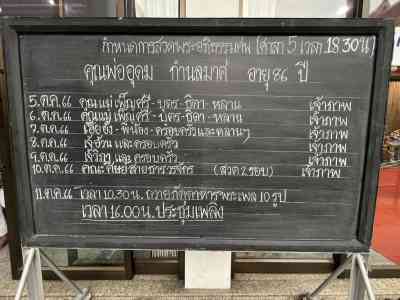 กำหนดการสวดพระอภิธรรมศพ (ศาลา 5 เวลา 18.30 น)
คุณพ่ออุดม กำนลมาศ อายุ 86 ปี
5.ต.ค.66 คุณแม่เพ็ญศรี-บุตร-ธิดา-หลาน เจ้าภาพ
6.ต.ค.66 คุณแม่เพ็ญศรี-บุตร-ธิดา-หลาน เจ้าภาพ
7.ต.ค.66 พี่น้อง-ครอบครัวและหลานๆ เจ้าภาพ
8.ต.ค.66 และครอบครัว เจ้าภาพ
9.ต.ค.66 และครอบครัว เจ้าภาพ
10.ต.ค.66 คณะศิษย์สายธารวรจักร (สวด 2 รอบ) เจ้าภาพ
11.ต.ค.66 เวลา 10.30 น. ถวายภัตตาหารพระเพล 10 รูป
เวลา 16.00 น. ประชุมเพลิง